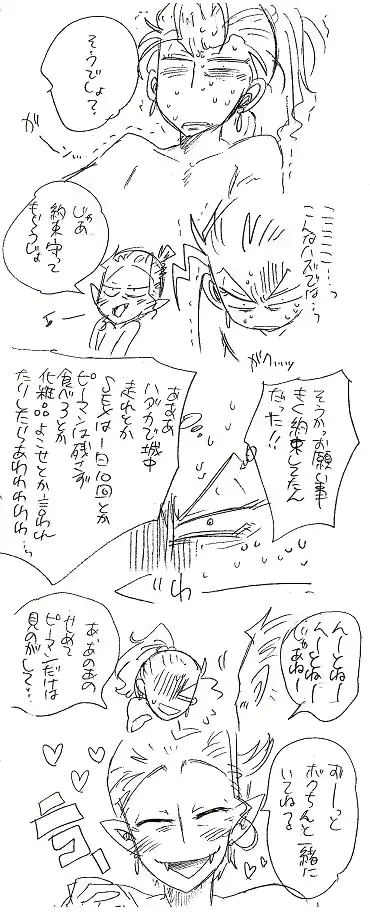 そうでしょて?
ガ
じゃあ
約束守って
もらうじょ
こここ…っ
こんなハズでは…っ
ガヘッ
そうかっお願い事
きく約束してたん
だった!!
あああ
ハダカで城中
走れとか
SEXは1日10回とか
ピーマンは残さず
食べろとか
化粧品よこせとか言われ
たりしたらあわわわわわ…っ
んーとねー
んーとねー
じゃあねー
あ、あのあの
せめて
ピーマンだけは
見のがして…っ
ずーっと
ボクちんと一緒に
いてねっ